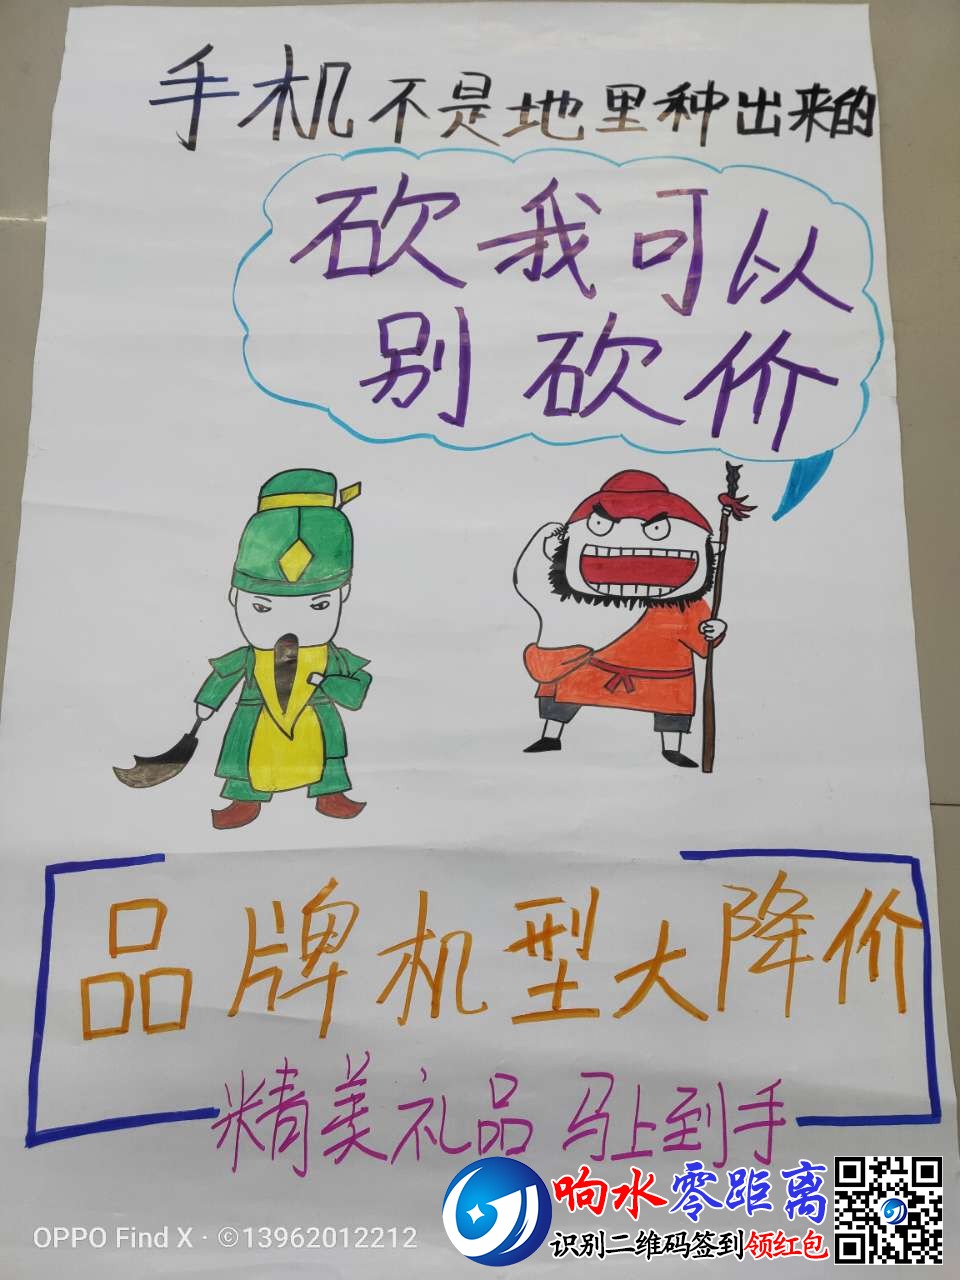 手机不是地里种出来的
砍我可以
别砍价
品牌机型大降价
精美礼品 马上到手
响水零距离
识别二维码签到领红包
OPPO Find X · ©13962012212